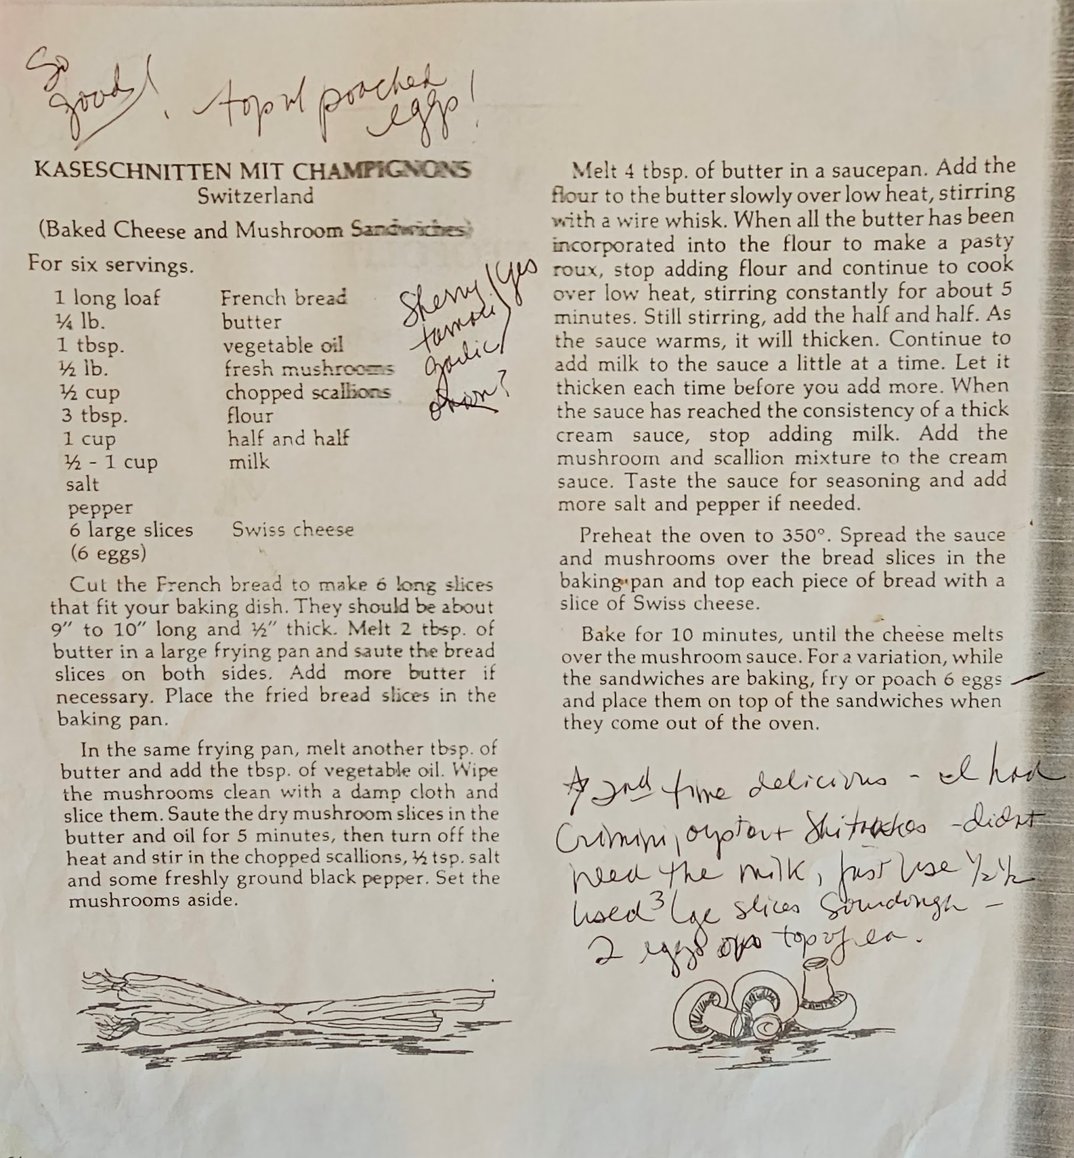 So
good! top w/ poached
eggs!
KASESCHNITTEN MIT CHAMPIGNONS
Switzerland
(Baked Cheese and Mushroom Sandwiches)
For six servings.
1 long loaf French bread
¼ lb. butter
1 tbsp. vegetable oil
½ lb. fresh mushrooms
½ cup chopped scallions
3 tbsp. flour
1 cup half and half
½ - 1 cup milk
salt
pepper
6 large slices Swiss cheese
(6 eggs)
Sherry / yes
tamari
garlic
onion?
Cut the French bread to make 6 long slices
that fit your baking dish. They should be about
9" to 10" long and ½" thick. Melt 2 tbsp. of
butter in a large frying pan and saute the bread
slices on both sides. Add more butter if
necessary. Place the fried bread slices in the
baking pan.
In the same frying pan, melt another tbsp. of
butter and add the tbsp. of vegetable oil. Wipe
the mushrooms clean with a damp cloth and
slice them. Saute the dry mushroom slices in the
butter and oil for 5 minutes, then turn off the
heat and stir in the chopped scallions, ½ tsp. salt
and some freshly ground black pepper. Set the
mushrooms aside.
Melt 4 tbsp. of butter in a saucepan. Add the
flour to the butter slowly over low heat, stirring
with a wire whisk. When all the butter has been
incorporated into the flour to make a pasty
roux, stop adding flour and continue to cook
over low heat, stirring constantly for about 5
minutes. Still stirring, add the half and half. As
the sauce warms, it will thicken. Continue to
add milk to the sauce a little at a time. Let it
thicken each time before you add more. When
the sauce has reached the consistency of a thick
cream sauce, stop adding milk. Add the
mushroom and scallion mixture to the cream
sauce. Taste the sauce for seasoning and add
more salt and pepper if needed.
Preheat the oven to 350°. Spread the sauce
and mushrooms over the bread slices in the
baking pan and top each piece of bread with a
slice of Swiss cheese.
Bake for 10 minutes, until the cheese melts
over the mushroom sauce. For a variation, while
the sandwiches are baking, fry or poach 6 eggs
and place them on top of the sandwiches when
they come out of the oven.
2nd time delicious - I had
Crimini, oyster + Shitakes - didnt
need the milk, just use ½ ½
used 3 lge slices Sourdough -
2 eggs top of ea.